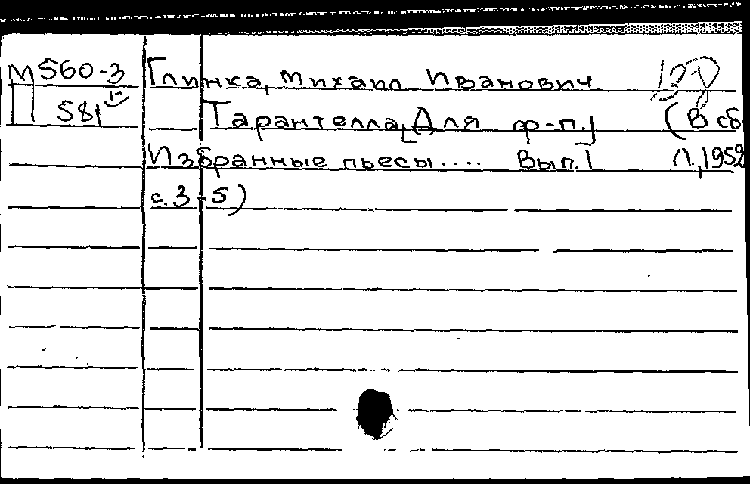 М560-3 Глинка, Михаил Иванович
П 581 Тарантелла [Для ф-п.] (В сб
Избранные пьесы.... Вып.1 Л.,1952
с.3-5)